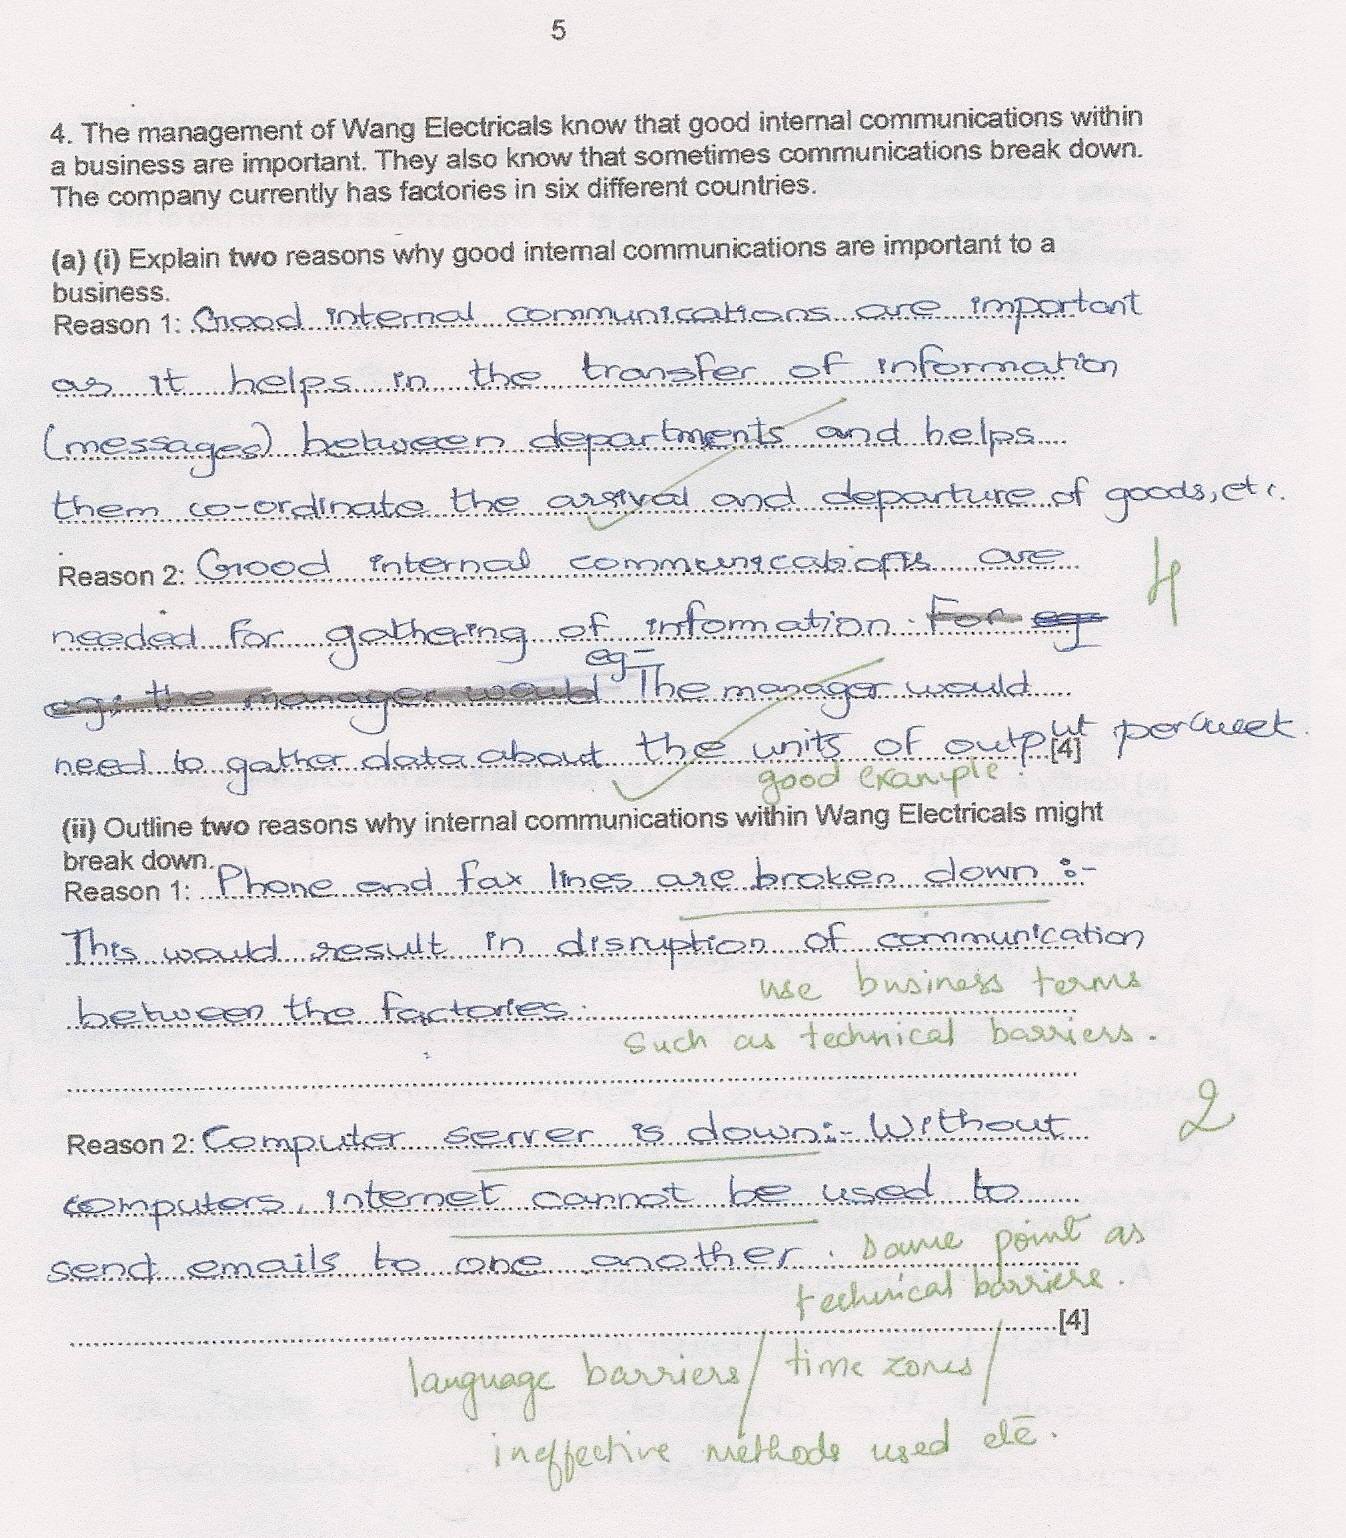 5
4. The management of Wang Electricals know that good internal communications within
a business are important. They also know that sometimes communications break down.
The company currently has factories in six different countries.
(a) (i) Explain two reasons why good internal communications are important to a
business.
Reason 1: Good internal communications are important
as it helps in the transfer of information
(messages) between departments and helps
them co-ordinate the arrival and departure of goods, etc.
Reason 2: Good internal communications are
4
needed for gathering of information. For eg
eg: the manager would eg- The manager would
need to gather data about the units of output per week.
[4]
good example.
(ii) Outline two reasons why internal communications within Wang Electricals might
break down.
Reason 1: Phone and fax lines are broken down :-
This would result in disruption of communication
between the factories.
use business terms
such as technical barriers.
2
Reason 2: Computer server is down:- Without
computers, internet cannot be used to
send emails to one another. same point as
technical barriers.
[4]
language barriers/ time zones/
ineffective methods used etc.